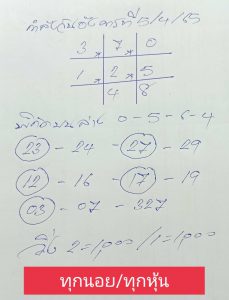 กำลังวันอังคารที่ 5/4/65
3 * 7 * 0
1 * 2 * 5
4 8
0-5-6-4
23 - 24 - 27 - 29
12 - 16 - 17 - 19
03 - 07 - 327
วิ่ง 2=1000 / 1=1000
ทุกนอย/ทุกหุ้น